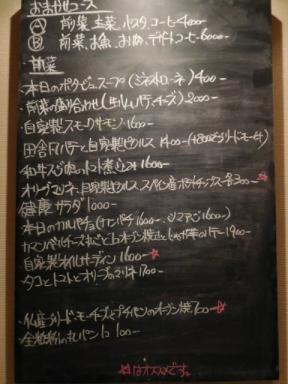 おまかせコース
Ⓐ 前菜、主菜、パスタ、コーヒー 4000-
Ⓑ 前菜、お魚、お肉、デザート、コーヒー 6000-
前菜
・本日のポタージュスープ(ミネストローネ) 400-
・前菜の盛り合わせ(生ハム、パテ、チーズ) 2000-
・自家製スモークサーモン 1600-
田舎風パテと自家製ピクルス 1400-
和牛スジ肉のトマト煮込み 1600-
オリーブマリネ、自家製ピクルス、スペイン産ポテトチップス 各300- ☆
健康サラダ 1000-
・本日のカルパッチョ(カンパチ 1600-、シマアジ 1600-)
カマンベールチーズ丸ごとオーブン焼き 1900-
・自家製オイルサーディン 1600- ☆
・タコとトマトとオリーブのマリネ 1700-
モッツァレラチーズとアンチョビのオーブン焼 700- ☆
・全粒粉の丸パン 1コ 100-
☆はオススメです。